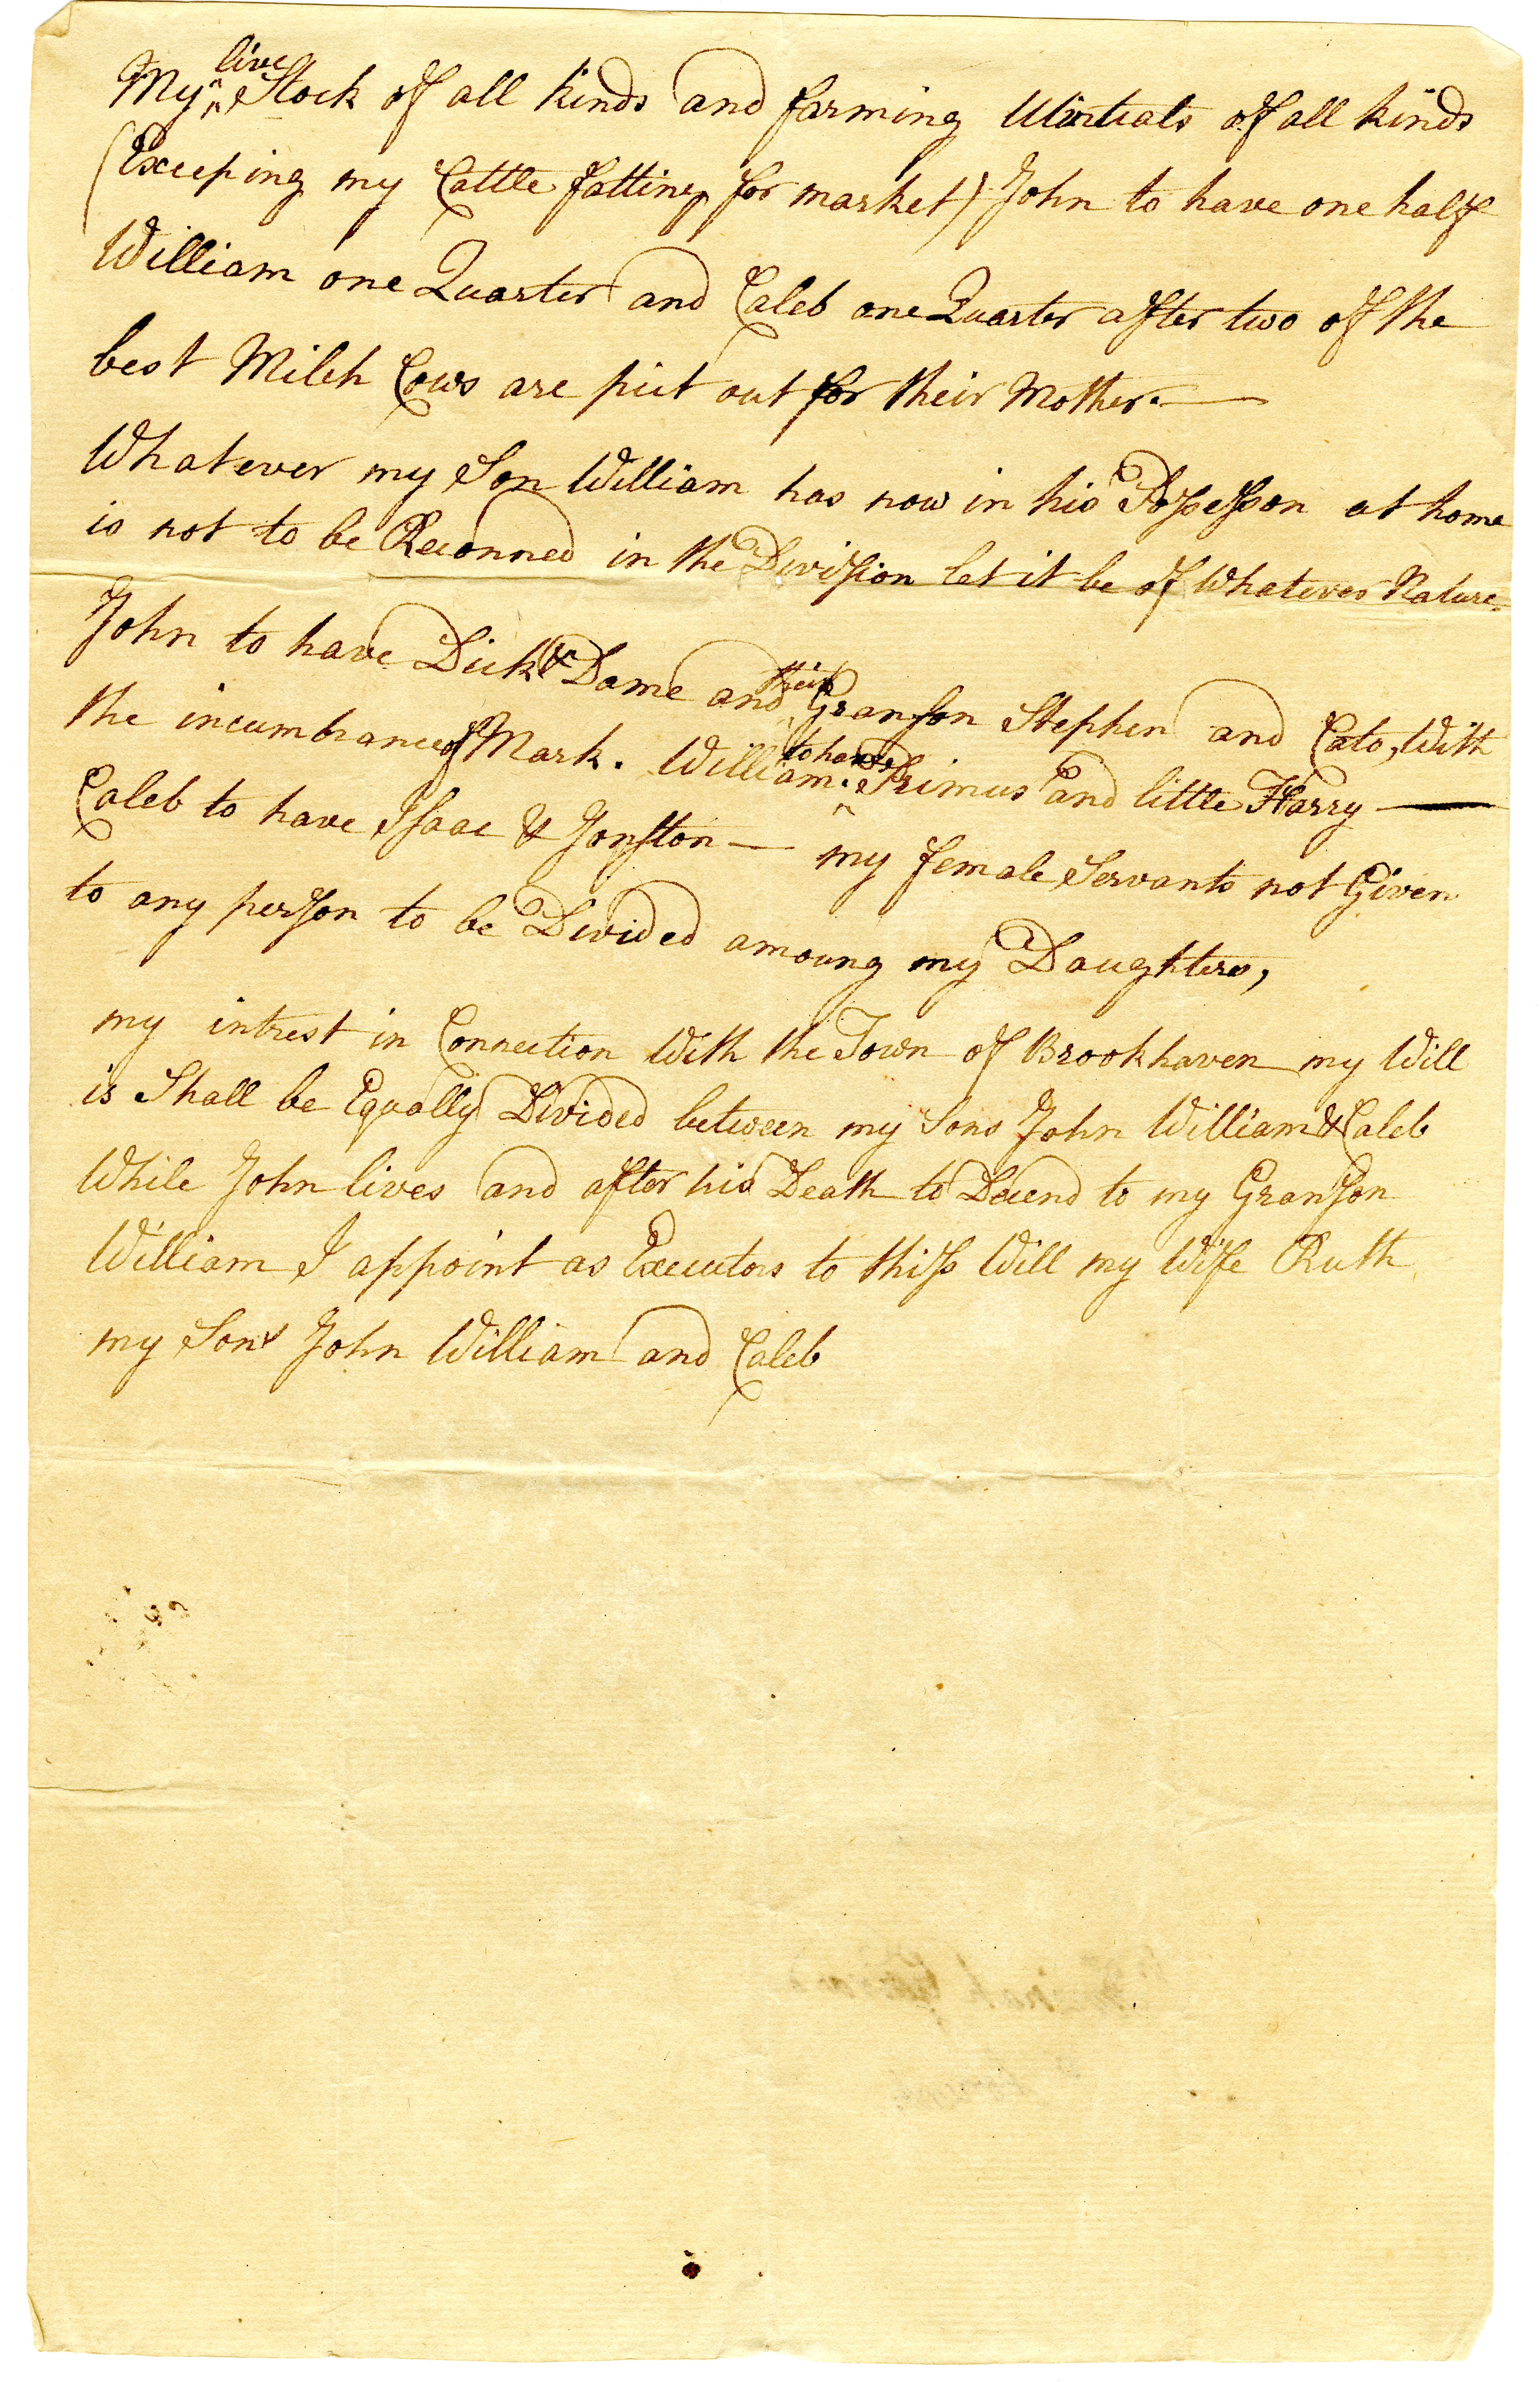 My live Stock of all kinds and farming Utintials of all kinds
(Exceeping my Cattle fatting for market) John to have one half
William one Quarter and Caleb one Quarter after two of the
best Milch Cows are put out for their Mother.—
Whatever my Son William has now in his Possesson at home
is not to be Reconned in the Division let it be of Whatever Nature
John to have Dick & Dame and their Granson Stephen and Cato, With
the incumbrance of Mark. William to have Primus and little Harry —
Caleb to have Isaac & Jonston — my female Servants not Given
to any person to be Divided amoung my Daughters,
my intrest in Connection With the Town of Brookhaven my Will
is Shall be Equally Divided between my Sons John William & Caleb
While John lives and after his Death to Decend to my Granson
William I appoint as Executors to thiss Will my Wife Ruth
my Sons John William and Caleb